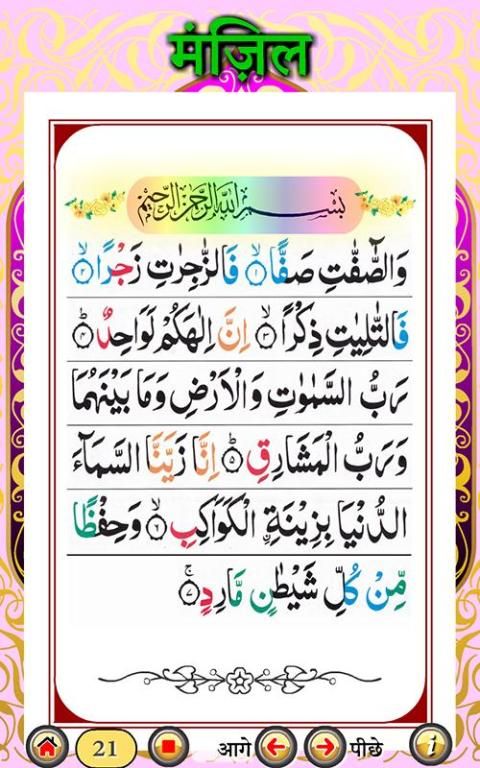 मंज़िल
بِسْمِ اللّٰهِ الرَّحْمٰنِ الرَّحِيْمِ
وَالصّٰٓفّٰتِ صَفًّاۙ۱ فَالزّٰجِرٰتِ زَجْرًاۙ۲
فَالتّٰلِيٰتِ ذِكْرًاۙ۳ اِنَّ اِلٰهَكُمْ لَوَاحِدٌؕ۴
رَبُّ السَّمٰوٰتِ وَالْاَرْضِ وَمَا بَيْنَهُمَا
وَرَبُّ الْمَشَارِقِؕ۵ اِنَّا زَيَّنَّا السَّمَآءَ
الدُّنْيَا بِزِيْنَةِ ۣالْكَوَاكِبِۙ۶ وَحِفْظًا
مِّنْ كُلِّ شَيْطٰنٍ مَّارِدٍۚ۷
21 आगे पीछे i